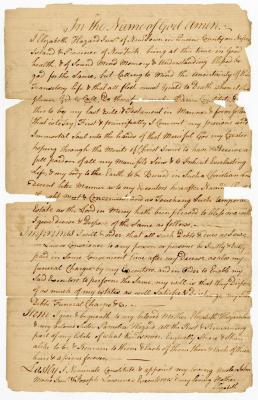 In the Name of God Amen.
I Elizabeth Hazard Junr of New Town in Queens County on Nassau
Island & Province of New York being at this time in good
health & of Sound Mind Memory & Understanding blessed be
god for the Same, but Calling to Mind the Uncertainty of this
Transitory Life & that all flesh must Yield to Death when it
please God to Call Do therefore make
this to be my last Will & Testament in Manner & form follow
that is to say First & principally I Commit my precious and
Immortal Soul into the hands of that Merciful God my Creator
hoping through the Merits of Christ Saviour to have & receive a
full pardon of all my Manifold Sins & to Inherit Everlasting
Life, & my body to the Earth to be Buried in Such a Christian and
Decent like Manner as to my Executors hereafter Named
meet & Convenient and as Touching Such temporal
Estate as the Lord in Mercy hath been pleased to bless me with
I give devise & Dispose of the Same as follows
Imprimis I will & order that all such Debts & dues as I owe
in Conscience to any person or persons be Justly & truly
paid in Some Convenient time after my decease as also my
funeral Charges by my Executors and in Order to Enable my
Said Executors to perform the Same, my will is that they Dispose
of so much of my estate as will Satisfie & discharge my
Debts Funeral Charges &c
Item I give & bequeath to my beloved Mother Elizabeth Hazard
& my beloved Sister Hazard all the Rest & remaining
part of my Estate of what kind soever Equally Share & Share
alike to be & Remain to them & each of them their & each of their
heirs & assigns forever
Lastly I Nominate Constitute & appoint my loving
Junr & Joseph Lawrence Executors & my loving Mother
Elizabeth